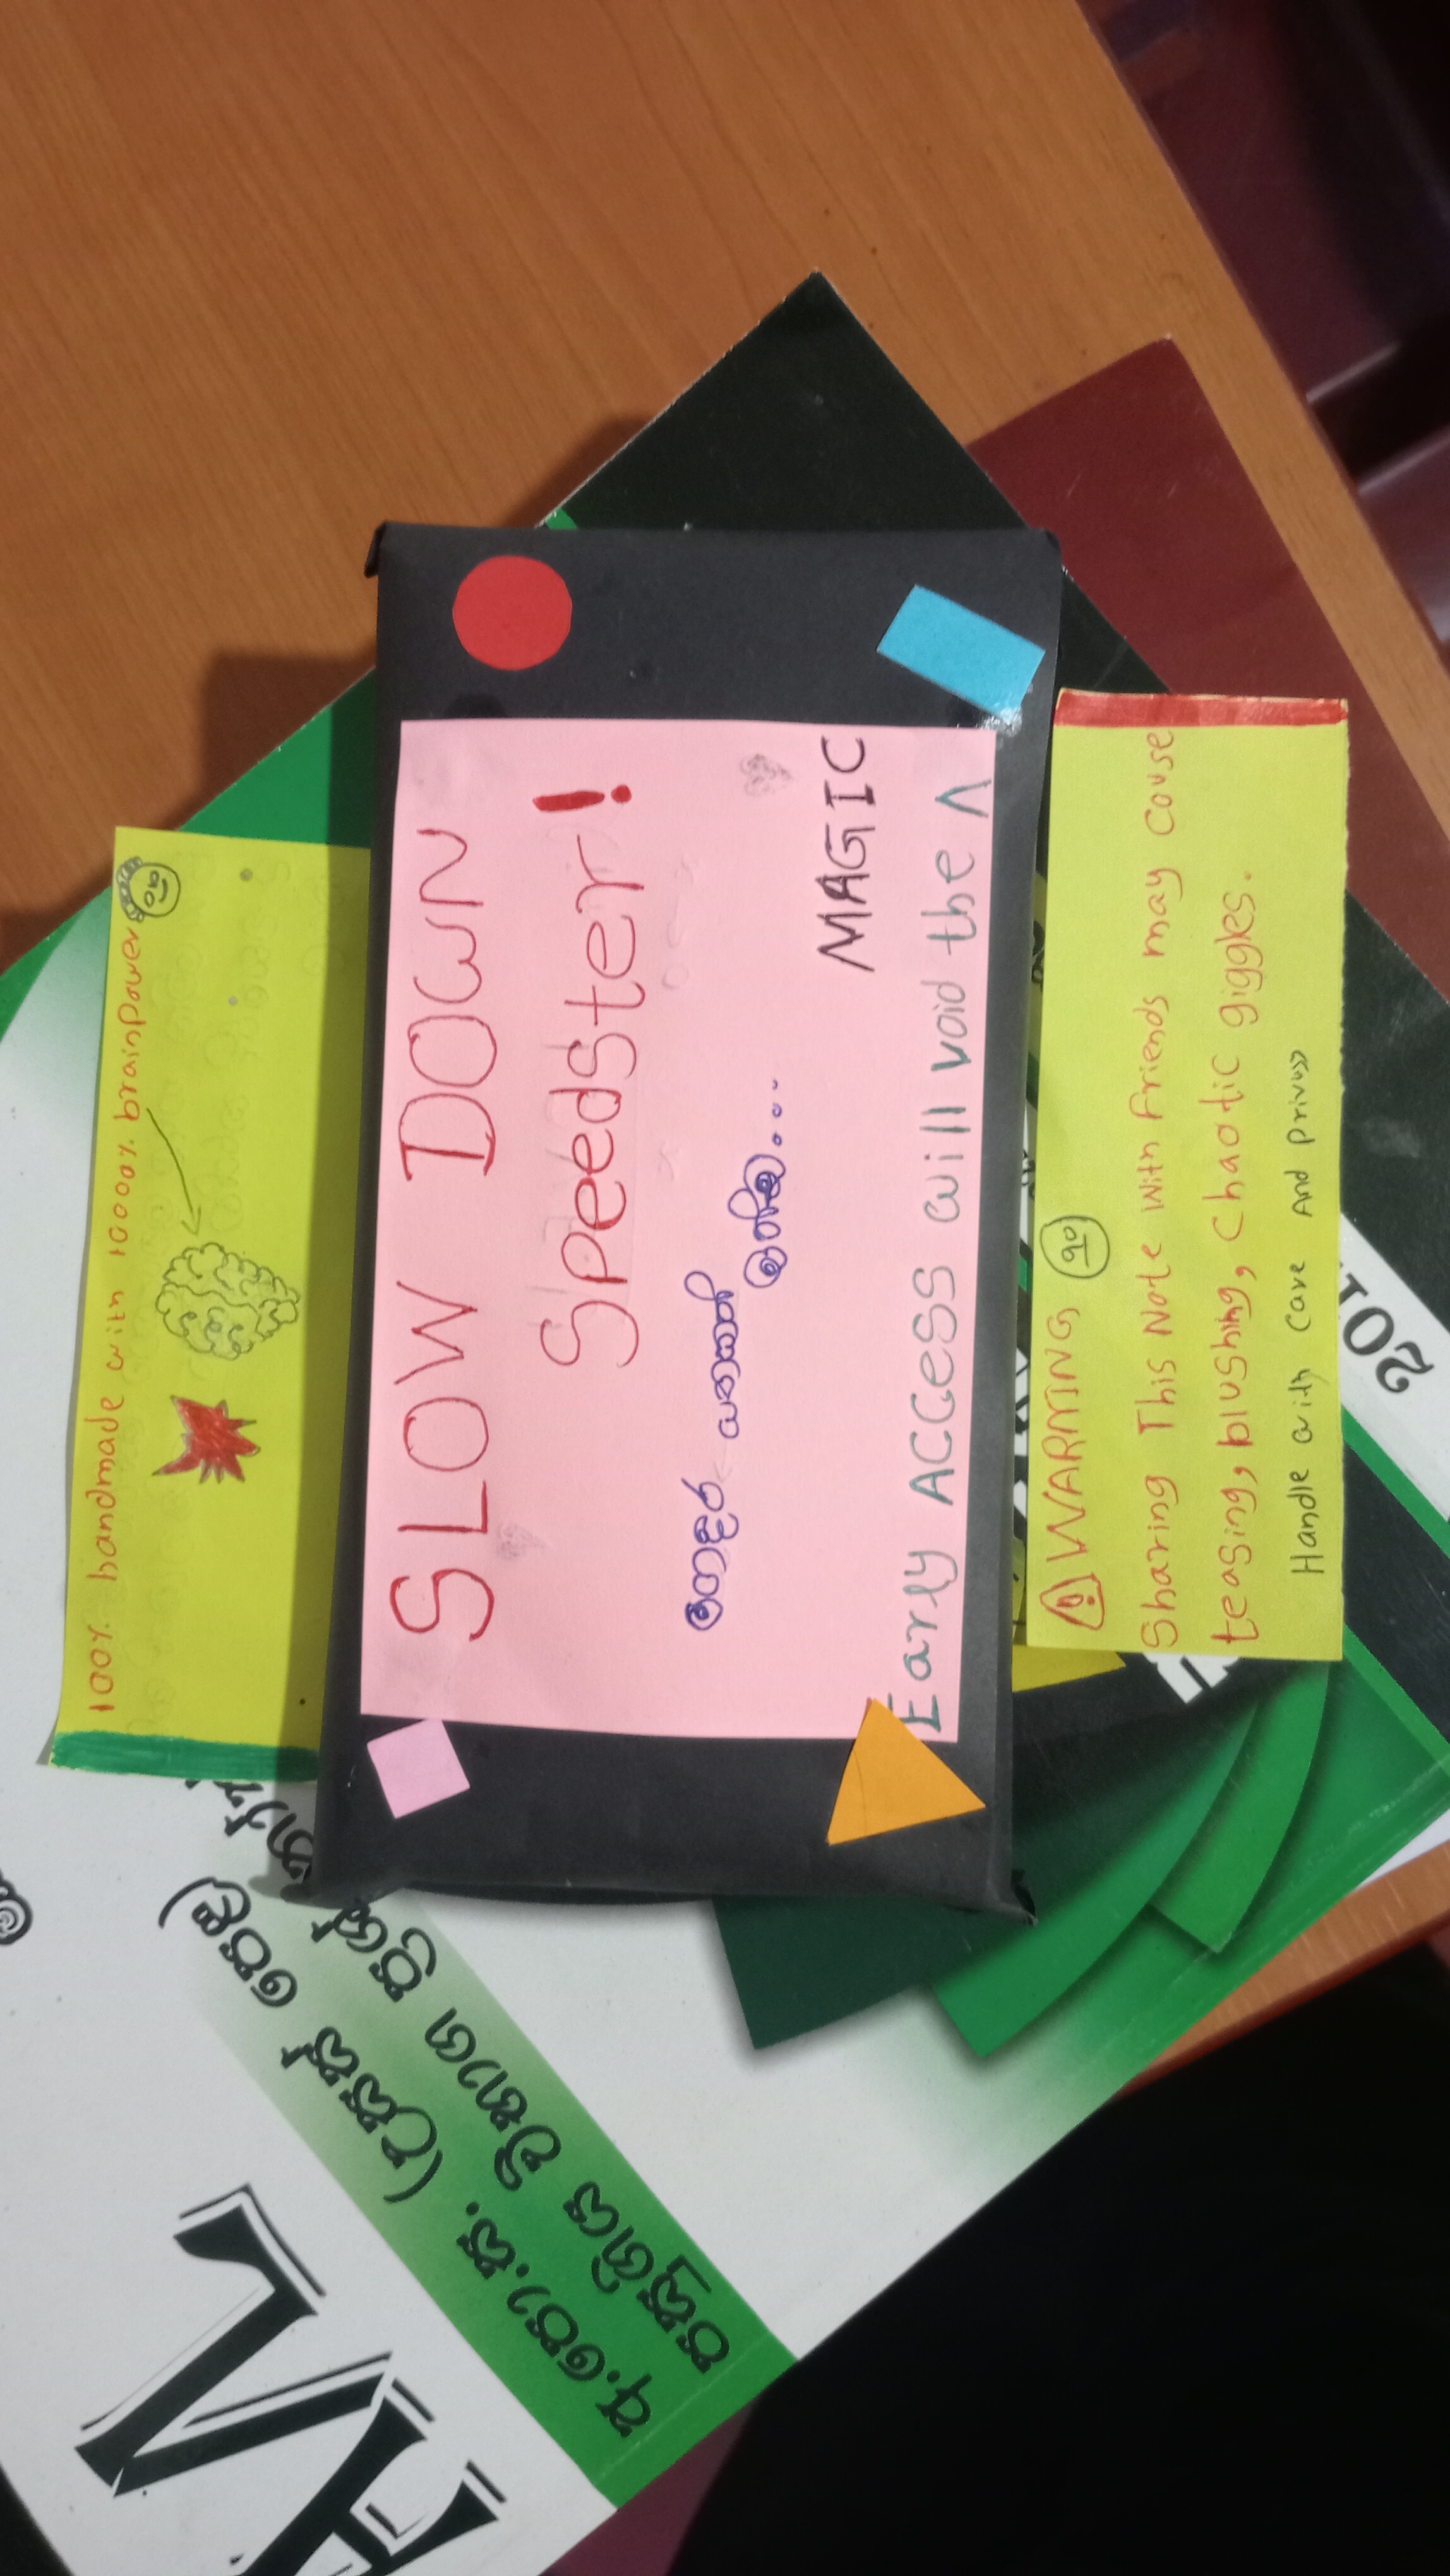 100% handmade with 10000% brainpower
SLOW DOWN
Speedster!
ගෙදර යනකන්
ඉන්න...
MAGIC
Early Access will void the Λ
WARNING
Sharing This Note With Friends may couse
teasing, blushing, Chaotic giggles.
Handle with Care And
අ.පො.ස. (උසස් පෙළ)
පසුගිය විභාග